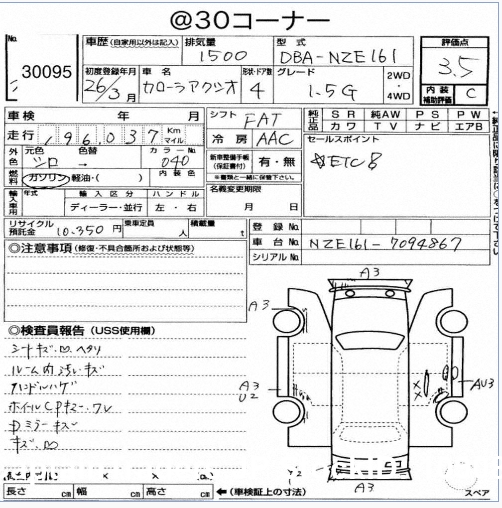 @30コーナー
No. 30095
車歴 (自家用以外は記入) 排気量 1500 型式 DBA-NZE161
評価点 3.5
初度登録年月 26年3月 車名 カローラアクシオ 形状・ドア数 4 グレード 1.5G 2WD・4WD
内装補助評価 C
車検 年 月 シフト FAT
純正品 SR 純AW PS PW
カワ TV ナビ エアB
走行 196,037 Km マイル 冷房 AAC
セールスポイント
ETC
外色 元色 シロ 色替 → カラーNo. 040
新車整備手帳(保証書付) 有・無
※書類と一緒に保管下さい。
燃料 ガソリン 軽油・( ) 内装色
名義変更期限 月 日
輸入車用 年式 輸入区分 ハンドル
ディーラー・並行 左・右
リサイクル預託金 10,350円 乗車定員 人 積載量 t
登録No.
車台No. NZE161-7094867
シリアルNo.
◎注意事項 (修復・不具合箇所および状態等)
◎検査員報告 (USS使用欄)
シートキズ・凹・ヘタリ
ルーム内汚レ・キズ
ハンドルハゲ
ホイルCPキズ・ワレ
Dミラーキズ
キズ・凹
A3
A3
A3
U2
AU3
Y2
A3
長さ cm 幅 cm 高さ cm ←(車検証上の寸法)
スペア